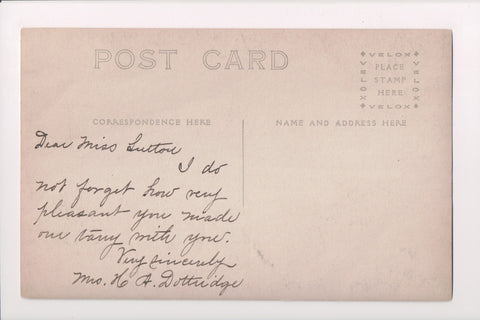 POST CARD
VELOX
VELOX
VELOX
VELOX
PLACE
STAMP
HERE
CORRESPONDENCE HERE
NAME AND ADDRESS HERE
Dear Miss Sutton
I do
not forget how very
pleasant you made
our tarry with you.
Very sincerely
Mrs. H A. Dottridge